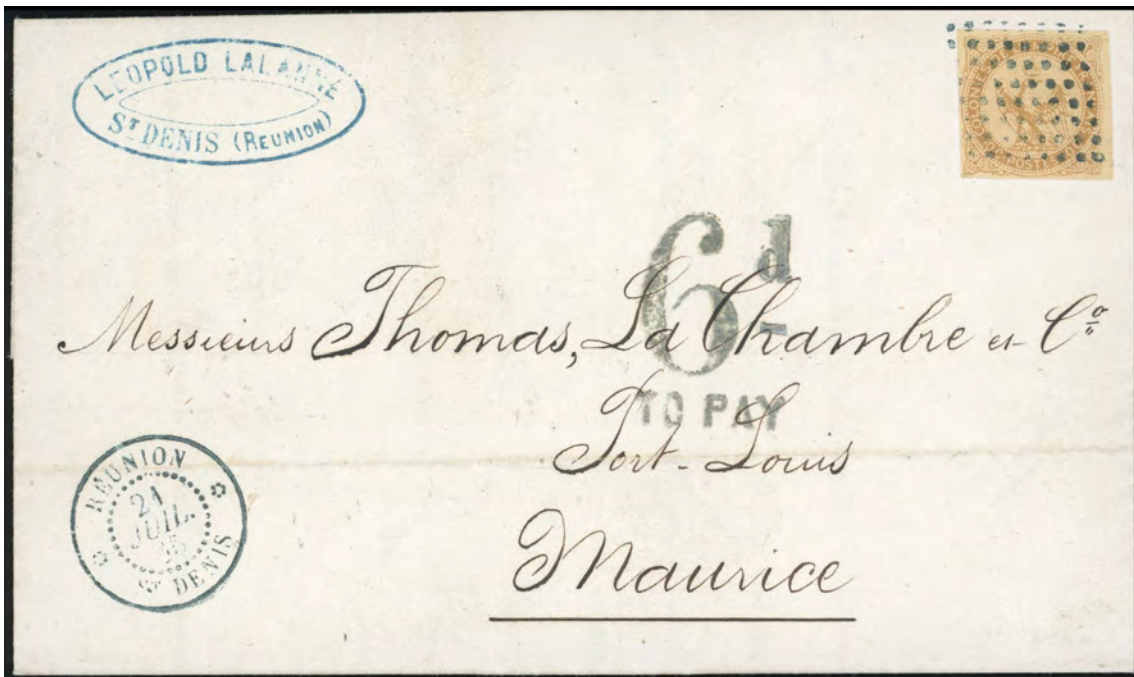 LEOPOLD LALANNE
ST DENIS (REUNION)
COLONIES
POSTES
6d
TO PAY
Messieurs Thomas, La Chambre et Co
Port-Louis
Maurice
REUNION
21
JUIL.
65
ST DENIS